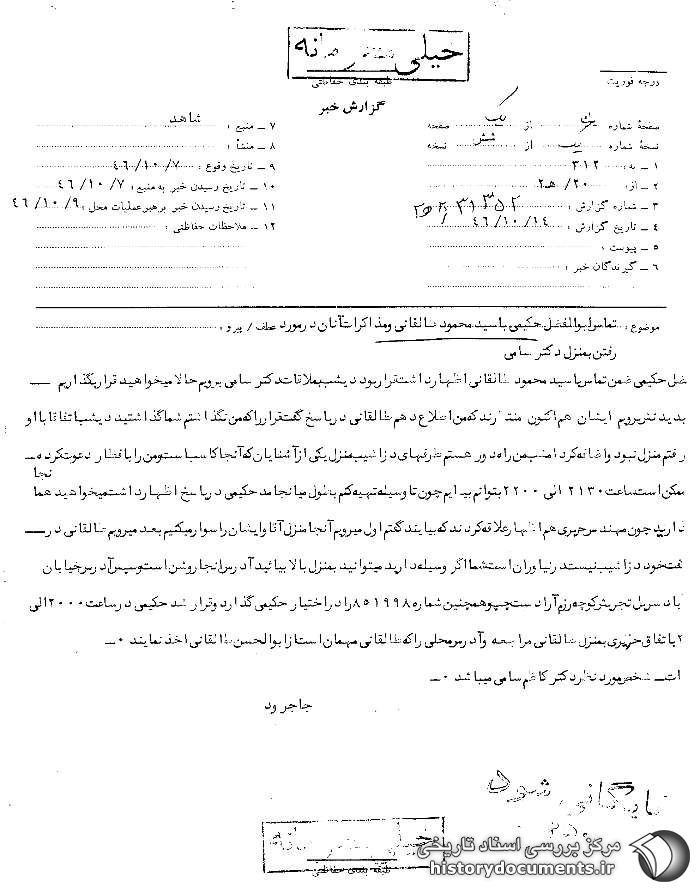 خیلی محرمانه
طبقه بندی حفاظتی
درجه فوریت
گزارش خبر
صفحهٔ شماره از یک صفحه
نسخهٔ شماره یک از شش نسخه
۱ ـ به: ۳۱۲
۲ ـ از: ۲۰/ هـ۲
۳ ـ شماره گزارش:
۴ ـ تاریخ گزارش: ۴۶/۱۰/۱۴
۵ ـ پیوست:
۶ ـ گیرندگان خبر:
۷ ـ منبع: شاهد
۸ ـ منشأ:
۹ ـ تاریخ وقوع: ۴۶/۱۰/۷
۱۰ ـ تاریخ رسیدن خبر به منبع: ۴۶/۱۰/۷
۱۱ ـ تاریخ رسیدن خبر برهبر عملیات محل: ۴۶/۱۰/۹
۱۲ ـ ملاحظات حفاظتی:
موضوع: تماس ابوالفضل حکیمی با سید محمود طالقانی و مذاکرات آنان در مورد عطف / پیرو:
رفتن بمنزل دکتر سامی
ضل حکیمی ضمن تماس با سید محمود طالقانی اظهار داشت قرار بود دیشب بملاقات دکتر سامی برویم حالا میخواهید قرار بگذاریم ـ
برویم ایشان هم اکنون منتظرند که من اطلاع دهم طالقانی در پاسخ گفت قرار را که من نگذاشتم شما گذاشتید دیشب اتفاقا با او
رفتم منزل نبود واضافه کرد امشب من راه دور هستم طرفهای دزاشیب منزل یکی از آشنایان که آنجا کاسب است و من را با فطار دعوت کرده ـ
نجا
ممکن است ساعت ۲۱۳۰ الی ۲۲۰۰ بتوانم بیایم چون تا وسیله تهیه کنم بطول میانجامد حکیمی در پاسخ اظهار داشت میخواهید هما
دارید چون مهندس حریری هم اظهار علاقه کردند که بیایند گفتم اول میرویم آنجا منزل آقا وایشان را سوار میکنیم بعد میرویم طالقانی در ـ
گفت خود دزاشیب نیست در نیاوران است شما اگر وسیله دارید میتوانید بمنزل بالا بیائید آدرس آنجا روشن است و سپس آدرس خیابان
آباد سر پل تجریش کوچه رزم آرا دست چپ و همچنین شماره ۸۵۱۹۹۸ را در اختیار حکیمی گذارد و قرار شد حکیمی در ساعت ۲۰۰۰ الی
۲ با تفاق حریری بمنزل طالقانی مراجعه و آدرس محلی را که طالقانی مهمان است از ابوالحسن طالقانی اخذ نمایند ۰ ـ
ات ـ شخص مورد نظر دکتر کاظم سامی میباشد ۰ ـ
جاجرود
بایگانی شود
خیلی محرمانه
طبقه بندی حفاظتی
مرکز بررسی اسناد تاریخی
historydocuments.ir